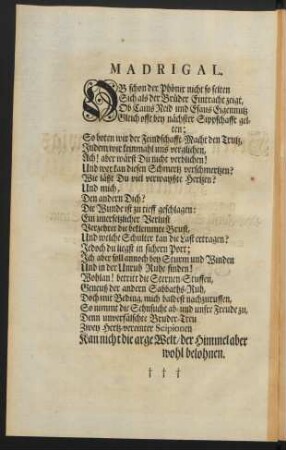 MADRIGAL.
OB schon der Phönix nicht so selten
Sich als der Brüder Eintracht zeigt,
Ob Cains Neid und Esaus Eigennutz
Gleich offt bey nächster Sippschafft gel-
ten;
So boten wir der Feindschafft-Macht den Trutz,
Indem wir uns verglichen,
Ach! aber wärst Du nicht verblichen!
Und wer kan diesen Schmertz verschmertzen?
Wie läßt Du viel verwayßte Hertzen?
Und mich,
Den andern Dich?
Die Wunde ist zu tieff geschlagen:
Ein unersetzlicher Verlust
Verzehret die beklemmte Brust,
Und welche Schulter kan die Last ertragen?
Jedoch du liegst in sichern Port;
Ich aber soll annoch bey Sturm und Winden
Und in der Unruh Ruhe finden!
Wohlan! betritt die Sternen-Stuffen,
Geneuß der andern Sabbaths-Ruh,
Doch mit Beding, mich baldest nachzuruffen,
So nimmt die Sehnsucht ab, und unser Freude zu,
Denn unverfälschte Bruder-Treu
Zwey Hertz-vereinter Scipionen
Kan nicht die arge Welt, der Himmel aber
wohl belohnen.
† † †